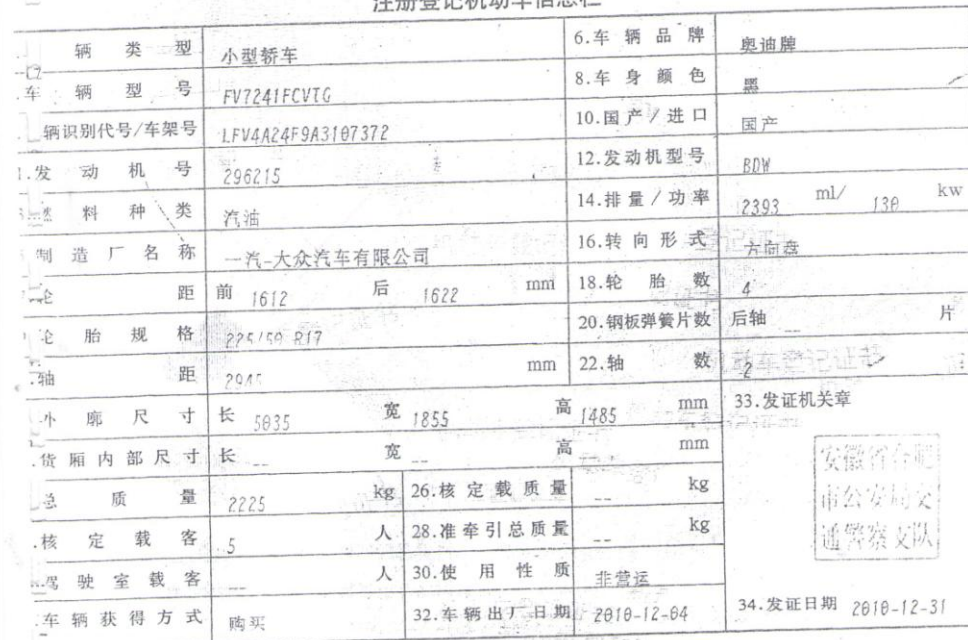 注册登记机动车信息栏
辆类型 小型轿车 6.车辆品牌 奥迪牌
车辆型号 FV7241FCVTG 8.车身颜色 黑
辆识别代号/车架号 LFV4A24F9A3107372 10.国产/进口 国产
发动机号 296215 12.发动机型号 BDW
料种类 汽油 14.排量/功率 2393 ml/ 130 kw
制造厂名称 一汽-大众汽车有限公司 16.转向形式 方向盘
轮距 前 1612 后 1622 mm 18.轮胎数 4
轮胎规格 225/50 R17 20.钢板弹簧片数 后轴 -- 片
轴距 2945 mm 22.轴数 2
外廓尺寸 长 5035 宽 1855 高 1485 mm 33.发证机关章
货厢内部尺寸 长 -- 宽 -- 高 -- mm
总质量 2225 kg 26.核定载质量 -- kg
核定载客 5 人 28.准牵引总质量 -- kg
驾驶室载客 -- 人 30.使用性质 非营运
车辆获得方式 购买 32.车辆出厂日期 2010-12-04 34.发证日期 2010-12-31
安徽省合肥
市公安局交
通警察支队